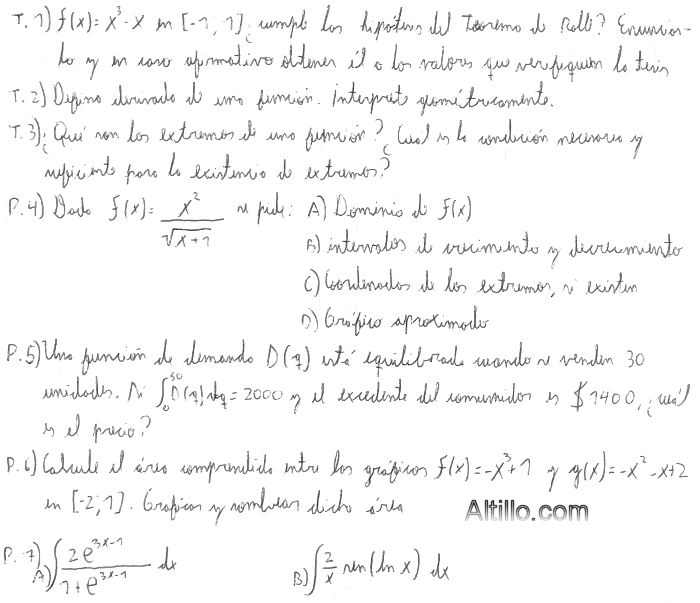 T.1) f(x)= x³-x en [-1, 1] ¿cumple las hipótesis del Teorema de Rolle? Enunciar-
lo y en caso afirmativo obtener él o los valores que verifiquen la tesis
T.2) Defina derivada de una función. Interprete geométricamente.
T.3) ¿Qué son los extremos de una función? ¿Cuál es la condición necesaria y
suficiente para la existencia de extremos?
P.4) Dada f(x)= x²/√(x+1) se pide: A) Dominio de f(x)
B) intervalos de crecimiento y decrecimiento
C) Coordenadas de los extremos, si existen
D) Gráfico aproximado
P.5) Una función de demanda D(q) está equilibrada cuando se venden 30
unidades. Si ∫₀³⁰ D(q) dq = 2000 y el excedente del consumidor es $1400, ¿cuál
es el precio?
P.6) Calcule el área comprendida entre las gráficas f(x)=-x³+1 y g(x)=-x²-x+2
en [-2,1]. Graficar y sombrear dicho área
Altillo.com
P.7) A) ∫ 2e^(3x-1)/(1+e^(3x-1)) dx B) ∫ 2/x sen(ln x) dx